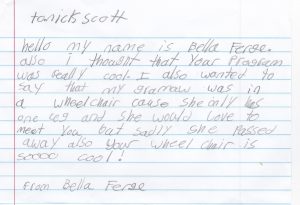 to nick scott
hello my name is Bella Ferge.
also I thought that Your Program
was really cool. I also wanted to
say that my gramow was in
a wheelchair cause she only has
one leg and she would love to
meet You, but sadly she Passed
away also your wheel chair is
soooo cool!
from Bella Ferge